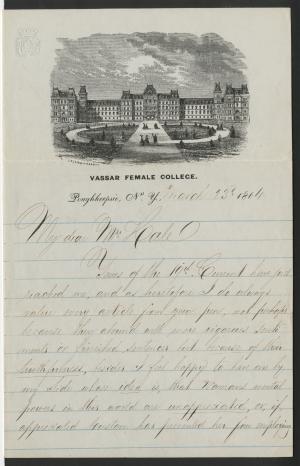 VASSAR FEMALE COLLEGE.
Poughkeepsie, N. Y. March 23d 1864
My dear Mrs Hale
of the 10th Current have just
reached me, and as heretofore I do always
value every article from your pen, not perhaps
because they abound with more vigorous senti-
ments or finished sentences but because of their
truthfulness, besides I feel happy to have one by
my side whose idea is, that Woman's mental
powers in this world are unappreciated, or, if
appreciated Custom has prevented her from employing